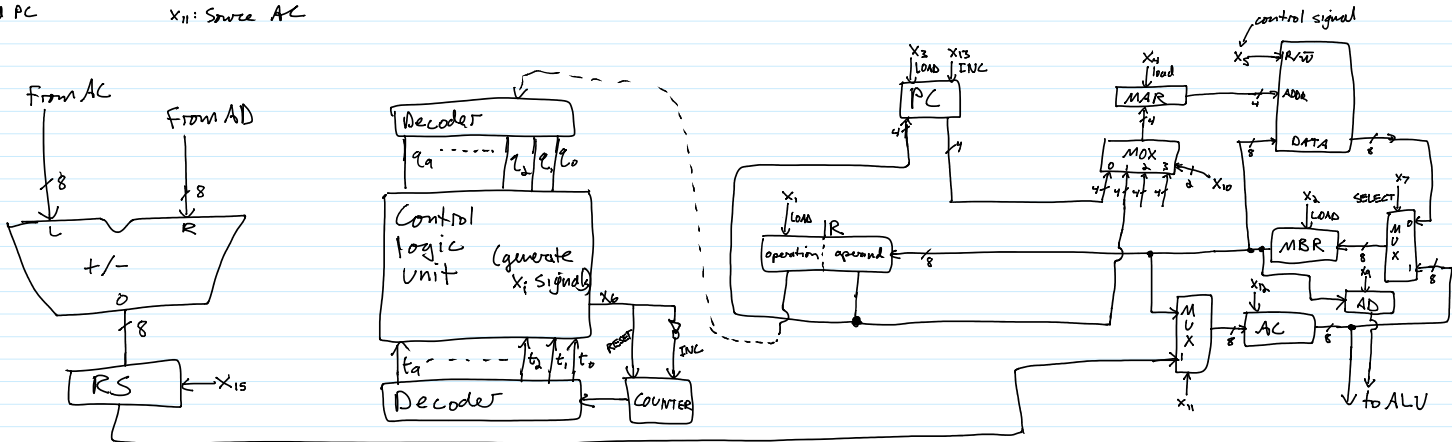 PC
X11: Source AC
From AC
From AD
8
8
L
R
+/-
O
8
RS
X15
Decoder
q9 q2 q1 q0
Control
logic
unit
(generate
Xi signals)
X6
RESET
INC
t9 t2 t1 t0
Decoder
COUNTER
X3
LOAD
X13
INC
PC
4
4
X1
LOAD
IR
operation
operand
8
X4
load
MAR
4
4
MUX
0 1 2 3
4 4 4 4
2
X10
control signal
X5
R/W
ADDR
DATA
8
8
X7
SELECT
MUX
0
1
8
8
X2
LOAD
MBR
AD
X12
AC
8
8
MUX
1
X11
to ALU